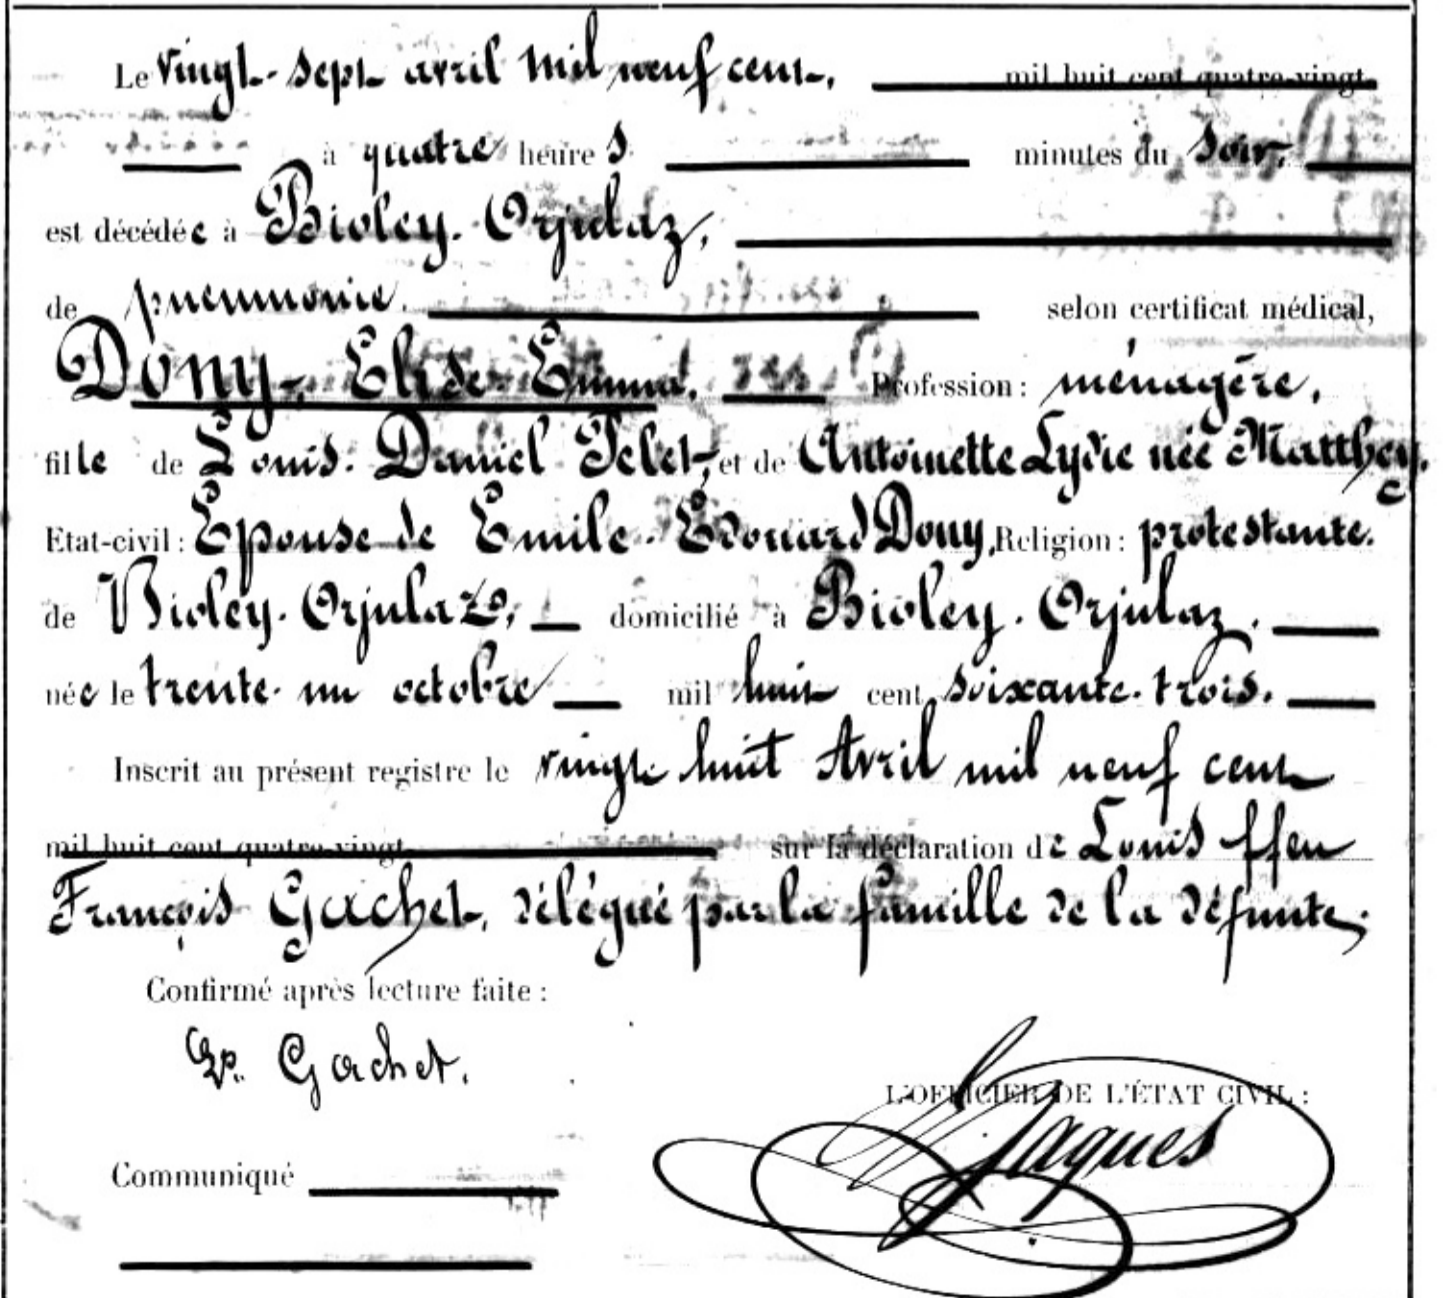 Le vingt-sept avril mil neuf cent, mil huit cent quatre-vingt
à quatre heures minutes du soir,
est décédée à Bioley-Orjulaz,
de pneumonie. selon certificat médical,
Dony, Elise-Emma, Profession : ménagère,
fille de Louis-Daniel Pelet, et de Antoinette Lydie née Matthey,
Etat-civil : Epouse de Emile-Edouard Dony, Religion : protestante.
de Bioley-Orjulaz, domicilié à Bioley-Orjulaz,
née le trente-un octobre mil huit cent soixante-trois.
Inscrit au présent registre le vingt huit Avril mil neuf cent
mil huit cent quatre-vingt sur la déclaration de Louis ffeu
François Gachet, délégué par la famille de la défunte.
Confirmé après lecture faite :
Ls. Gachet.
L'OFFICIER DE L'ÉTAT CIVIL :
Jaques
Communiqué